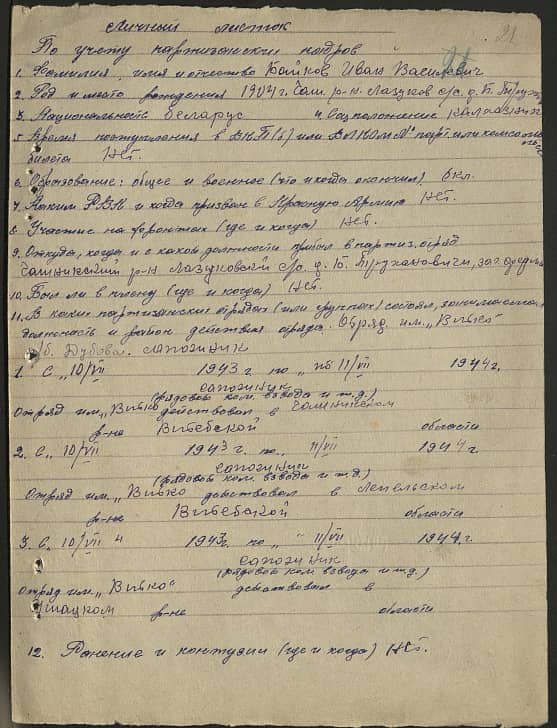 Личный листок
21
По учету партизанских кадров
1. Фамилия, имя и отчество Байков Иван Василевич
2. Год и место рождения 1904 г. Чаш. р-н. Лазуков с/с. д. Б. Трухан
3. Национальность беларус 4 соцположение калхозник
5. Время поступления в ВКП(б) или ВЛКСМ № парт. или комсомольс.
билета Нет.
6. Образование: общее и военное (что и когда окончил) 6 кл.
7. Каким РВК и когда призван в Красную Армию Нет.
8. Участие на фронтах (где и когда) Нет.
9. Откуда, когда и с какой должности прибыл в партиз. отряд
Чашникский р-н Лазуковский с/с. д. Б. Трухановичи,
10. Был ли в плену (где и когда) Нет.
11. В каких партизанских отрядах (или группах) состоял,
должность и район действия отряда. Отряд им. „Витько"
п/б. Дубова. сапожник
1. С „10/VII 1943 г. по „ по 11/VII 1944 г.
сапожник
(рядовой ком. взвода и т.д.)
Отряд им. „Витько действовал в Чашникском
р-не Витебской области
2. С „ 10/VII 1943 г. по „ 11/VII 1944 г.
сапожник
(рядовой ком. взвода и т.д.)
Отряд им. „Витько действовал в Лепельском
р-не Витебской области
3. С „ 10/VII " 1943 г. по " 11/VII 1944 г.
сапожник
(рядовой ком. взвода и т.д.)
Отряд им. „Витько" действовал в
Ушацком р-не области
12. Ранение и контузии (где и когда) Нет.